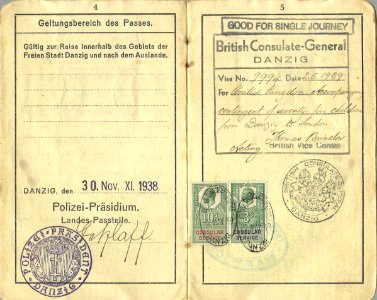 4
Geltungsbereich des Passes.
Gültig zur Reise innerhalb des Gebiets der
Freien Stadt Danzig und nach dem Auslande.
DANZIG, den 30. Nov. XI. 1938
Polizei-Präsidium.
Landes-Passtelle.
POLIZEI-PRÄSIDENT
DANZIG
5
GOOD FOR SINGLE JOURNEY
British Consulate-General
DANZIG
Visa No. 9994 Date
For United Kingdom accompanying
contingent of seventy five children
from Danzig to London
Thomas
Acting British Vice Consul
CONSULAR
SERVICE
CONSULAR
SERVICE
BRITISH
DANZIG